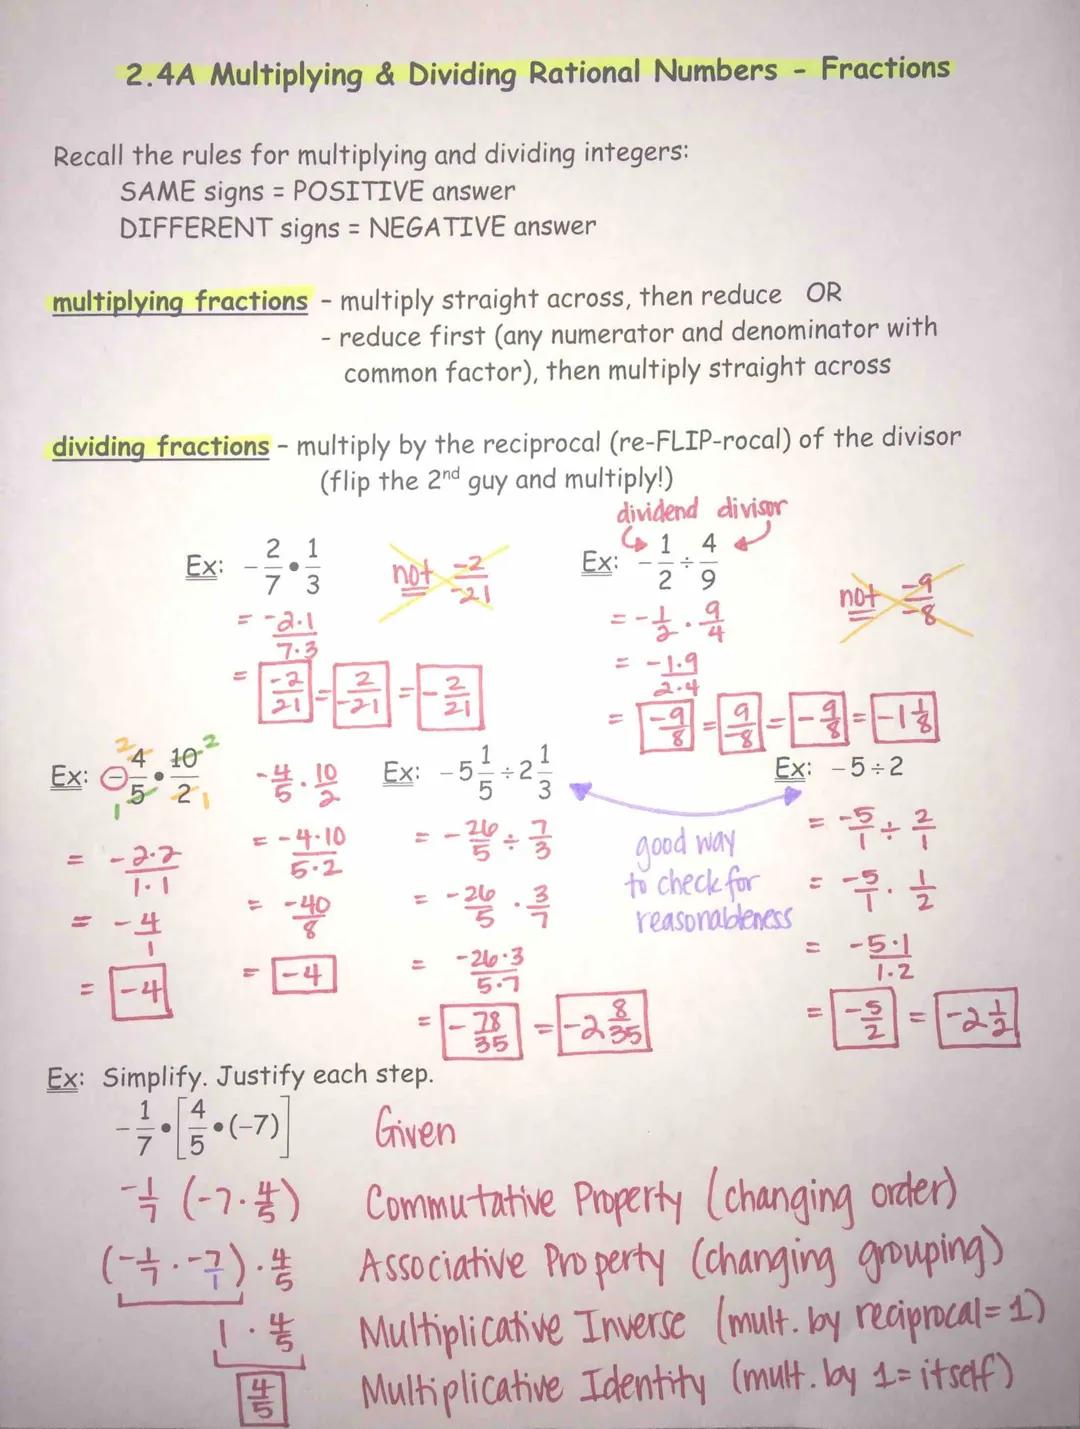 2.4A Multiplying & Dividing Rational Numbers - Fractions
Recall the rules for multiplying and dividing integers:
SAME signs = POSITIVE answer
DIFFERENT signs = NEGATIVE answer
multiplying fractions - multiply straight across, then reduce OR
- reduce first (any numerator and denominator with
common factor), then multiply straight across
dividing fractions - multiply by the reciprocal (re-FLIP-rocal) of the divisor
(flip the 2nd guy and multiply!)
dividend divisor
Ex: -2/7 • 1/3
not -2/-21
= -2·1/7·3
= -2/21 = 2/-21 = -2/21
Ex: -1/2 ÷ 4/9
not -9/-8
= -1/2 · 9/4
= -1·9/2·4
= -9/8 = 9/-8 = -9/8 = -1 1/8
Ex: -4/5 • 10/2
2 2
1 1
= -2·2/1·1
= -4/1
= -4
-4/5 · 10/2
= -4·10/5·2
= -40/8
= -4
Ex: -5 1/5 ÷ 2 1/3
= -26/5 ÷ 7/3
= -26/5 · 3/7
= -26·3/5·7
= -78/35 = -2 8/35
good way
to check for
reasonableness
Ex: -5÷2
= -5/1 ÷ 2/1
= -5/1 · 1/2
= -5·1/1·2
= -5/2 = -2 1/2
Ex: Simplify. Justify each step.
-1/7 • [4/5 • (-7)] Given
-1/7 (-7 · 4/5) Commutative Property (changing order)
(-1/7 · -7/1) · 4/5 Associative Property (changing grouping)
1 · 4/5 Multiplicative Inverse (mult. by reciprocal = 1)
4/5 Multiplicative Identity (mult. by 1 = itself)